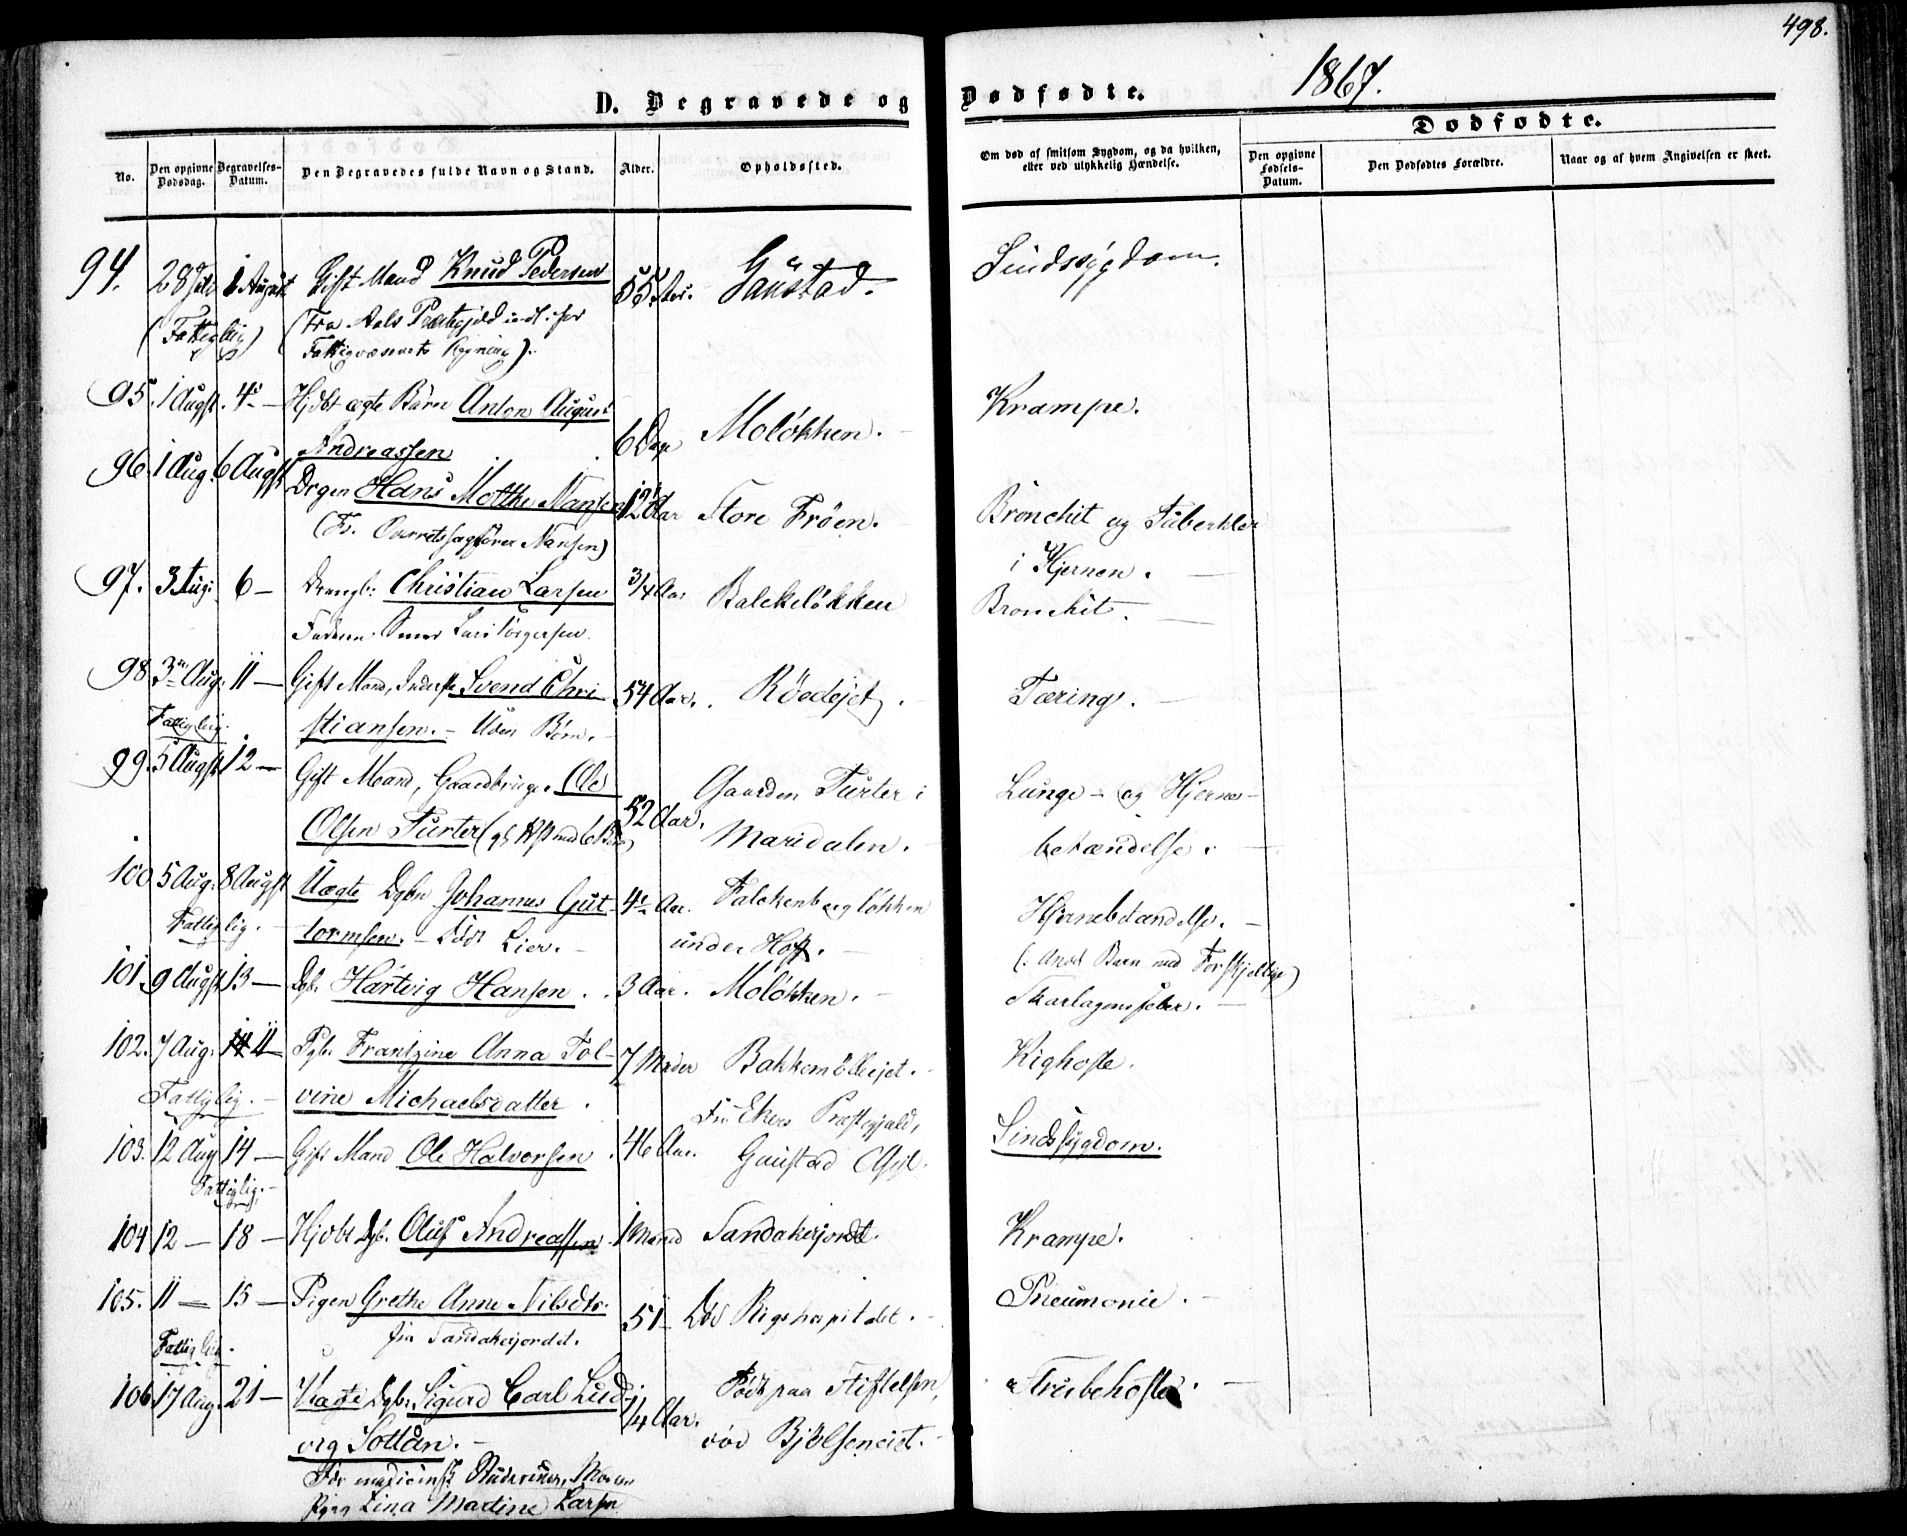 498.
1867.
D. Begravede og Dødfødte.
Dødfødte.
No.
Den opgivne Dødsdag.
Begravelses-Datum.
Den Begravedes fulde Navn og Stand.
Alder.
Opholdssted.
Om død af smitsom Sygdom, og da hvilken, eller ved ulykkelig Hændelse.
Den opgivne Fødsels-Datum.
Den Dødfødtes Forældre.
Naar og af hvem Angivelsen er skeet.
94. 28 Juli 1 August Gift Mand Knud Pedersen 55 Aar. Gaustad. Sindssygdom.
(Fattiglig) (Fra Aals Præstegjeld indl. for
Fattigvæsenets Regning).
95. 1 Augst. 4 — Hjdbt ægte Barn Anton August
Andreassen 6 Dage Moløkken. Krampe.
96. 1 Aug. 6 Augst Drgen Hans Moltke Nansen 12 Aar Store Frøen. Bronchit og Tuberkler
(F. Overretssagfører Nansen) i Hjernen.
97. 3 Aug. 6 — Drengb: Christian Larsen 3/4 Aar Balckeløkken Bronchit.
Faderen Lars Torgersen.
98. 3 Aug. 11 — Gift Mand, Inderst Svend Chri
stiansen. — Uden Børn. 54 Aar. Røedejet. Tæring.
Fattiglig.
99. 5 Augst. 12 — Gift Mand, Gaardbruger Ole
Olsen Turter 52 Aar. Gaarden Turter i
Maridalen. Lunge- og Hjerne-
betændelse.
100. 5 Aug. 8 Augst Uægte Dgbn Johannes Gut-
tormsen. — Født Lier. 4 Aar. Falckenbergløkken
under Hoff. Hjernebetændelse.
Fattiglig. (: Andet Barn med Forskjellige)
101. 9 Augst 13 — Dgb. Hartvig Hansen. 3 Aar. Moløkken. Skarlagensfeber.
102. 7 Aug. 11 — Pgb. Frantzine Anna Tol-
vine Michaelsdatter. 7 Mdr Bakkemølleiet. Kighoste.
Fattiglig.
Fra Ekers Præstegjald,
103. 12 Aug 14 — Gift Mand Ole Halvorsen. 46 Aar. Gaustad Asyl. Sindssygdom.
Fattiglig.
104 12 — 18 — Hjdbt Dgb. Oluf Andreassen. 1 Maaned Sandakerjordet. Krampe.
105. 11 — 15 — Pigen Grethe Anne Nilsdtr.
fra Sandakerjordet. 51 Død Rigshospitalet. Pneumonie.
Fattiglig.
106 17 Aug. 21 — Uægte Dgb. Sigurd Carl Lud-
vig Sollan. — 1/4 Aar. Født paa Stiftelsen,
død Bjølseneiet. Strubehoste.
Far medicinsk Studerende, Moren
Pigen Lina Martine Larsen